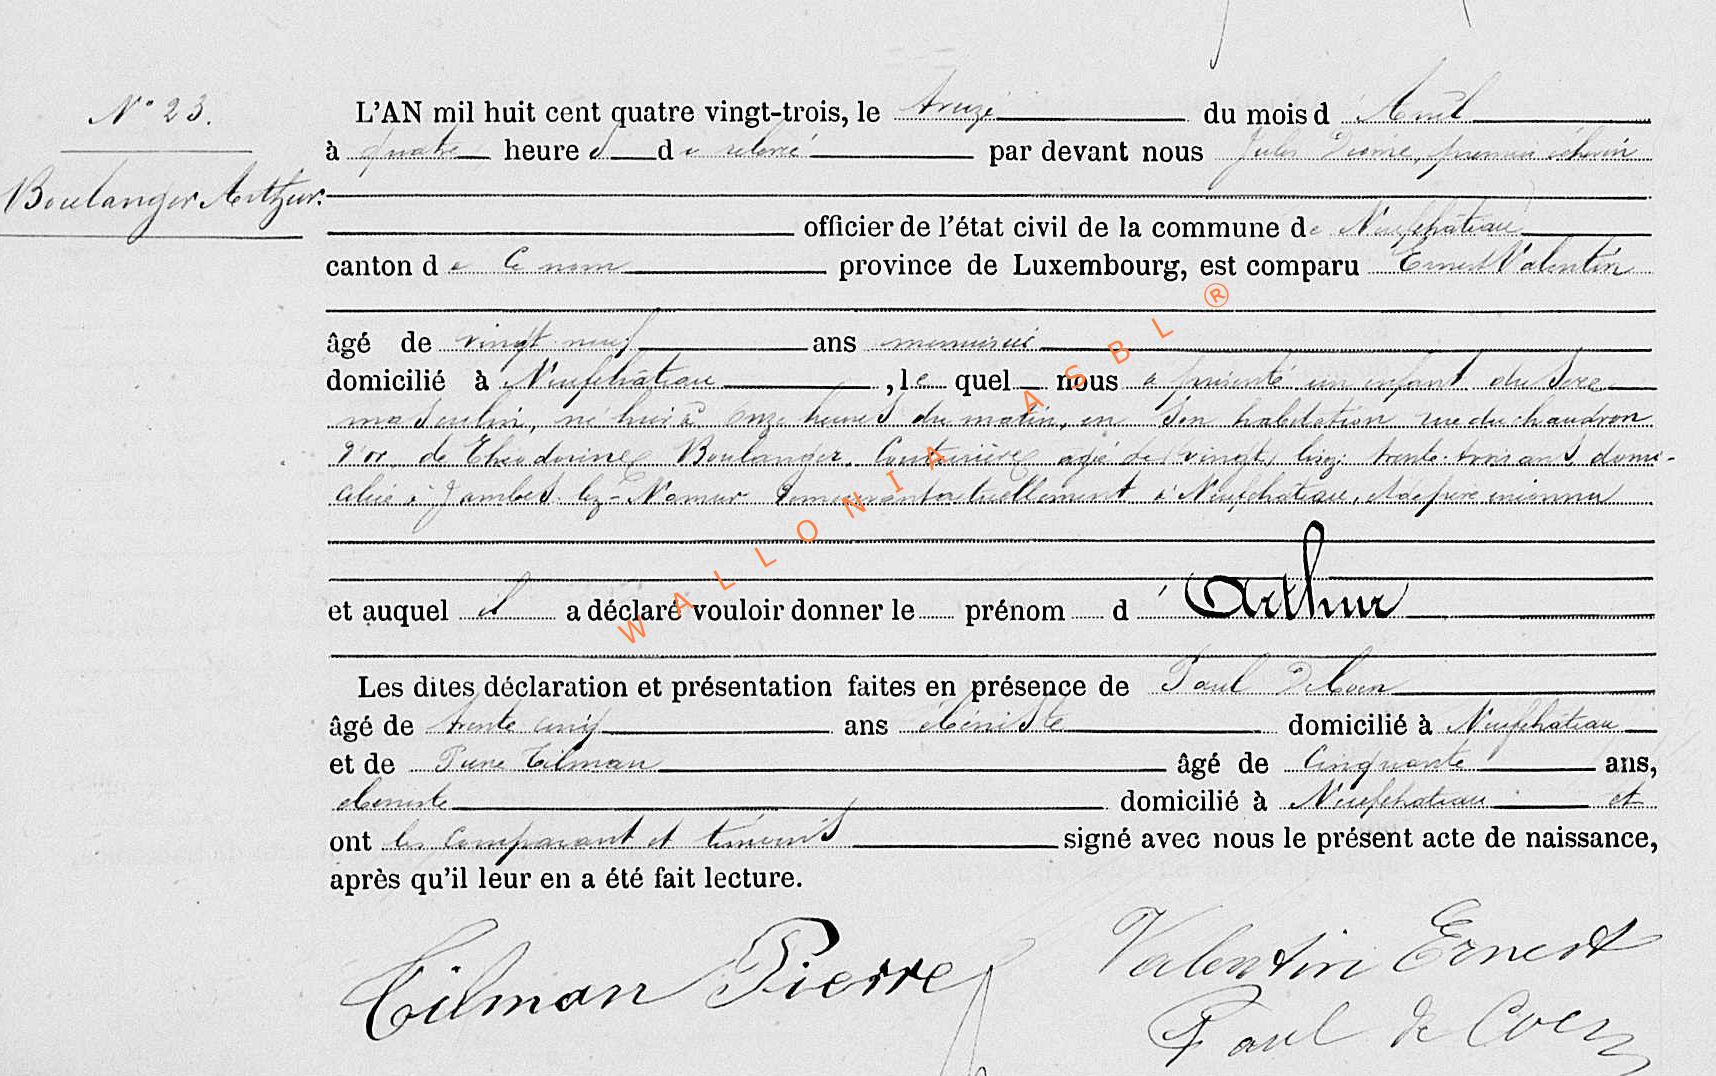 N° 23.
Boulanger Arthur.
L'AN mil huit cent quatre vingt-trois, le treize du mois d'Avril
à quatre heures de relevé par devant nous Jules premier échevin
officier de l'état civil de la commune de Neufchâteau
canton de ce nom province de Luxembourg, est comparu Ernest Valentin
âgé de vingt neuf ans menuisier
domicilié à Neufchâteau, lequel nous a présenté un enfant du sexe
masculin, né hier à onze heures du matin, en son habitation rue du chaudron
d'or, de Théodorine Boulanger, Couturière agée de (vingt) trente-trois ans, domi-
ciliée à Jambes lez-Namur demeurant actuellement à Neufchâteau, et de père inconnu
et auquel il a déclaré vouloir donner le prénom d'Arthur
Les dites déclaration et présentation faites en présence de Paul Decoen
âgé de trente cinq ans ébéniste domicilié à Neufchateau
et de Pierre Tilman âgé de Cinquante ans,
ébeniste domicilié à Neufchateau et
ont les comparant et témoins signé avec nous le présent acte de naissance,
après qu'il leur en a été fait lecture.
Tilman Pierre Valentin Ernest
Paul de Coen
WALLONIA ASBL ®